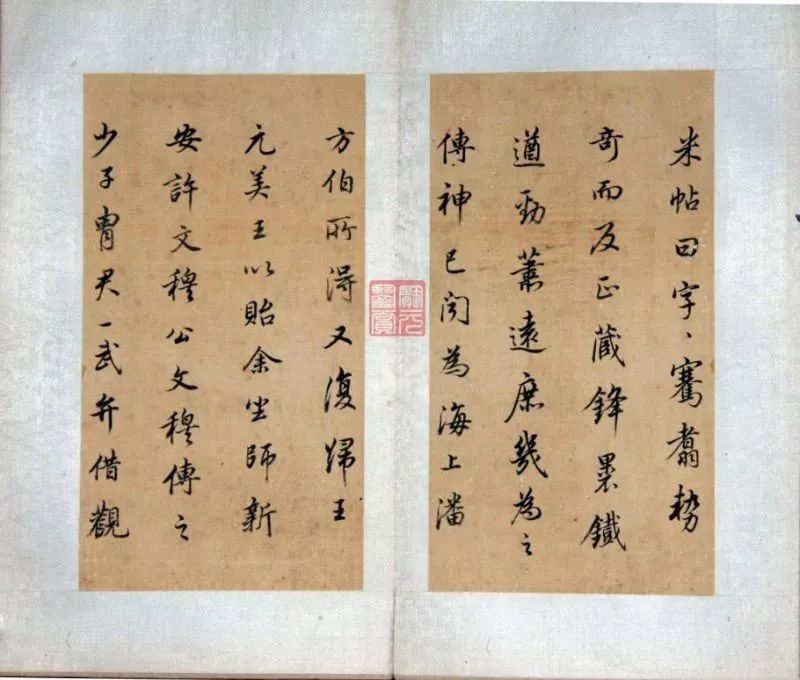 米帖曰字、騫翥勢
奇而反正藏鋒裹鐵
遒勁蕭遠庶幾為之
傳神已閱為海上潘
方伯所得又復歸王
元美王以貽余坐師新
安許文穆公文穆傳之
少子胄君一武弁借觀